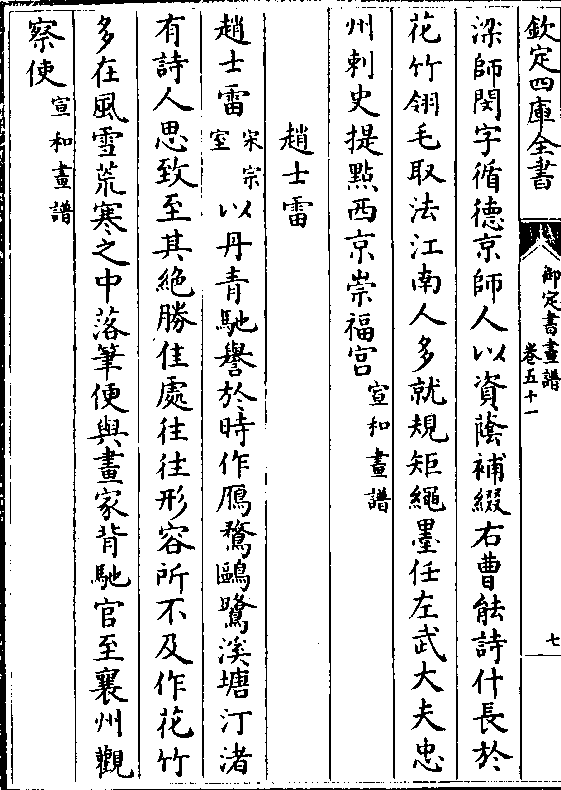 欽定四庫全書
御定書畫譜
卷五十一
七
梁師閔字循德京師人以資蔭補綴右曹能詩什長於
花竹翎毛取法江南人多就規矩繩墨任左武大夫忠
州刺史提點西京崇福宮宣和畫譜
趙士雷
趙士雷宋宗室以丹青馳譽於時作鴈鶩鷗鷺溪塘汀渚
有詩人思致至其絕勝佳處往往形容所不及作花竹
多在風雪荒寒之中落筆便與畫家背馳官至襄州觀
察使宣和畫譜